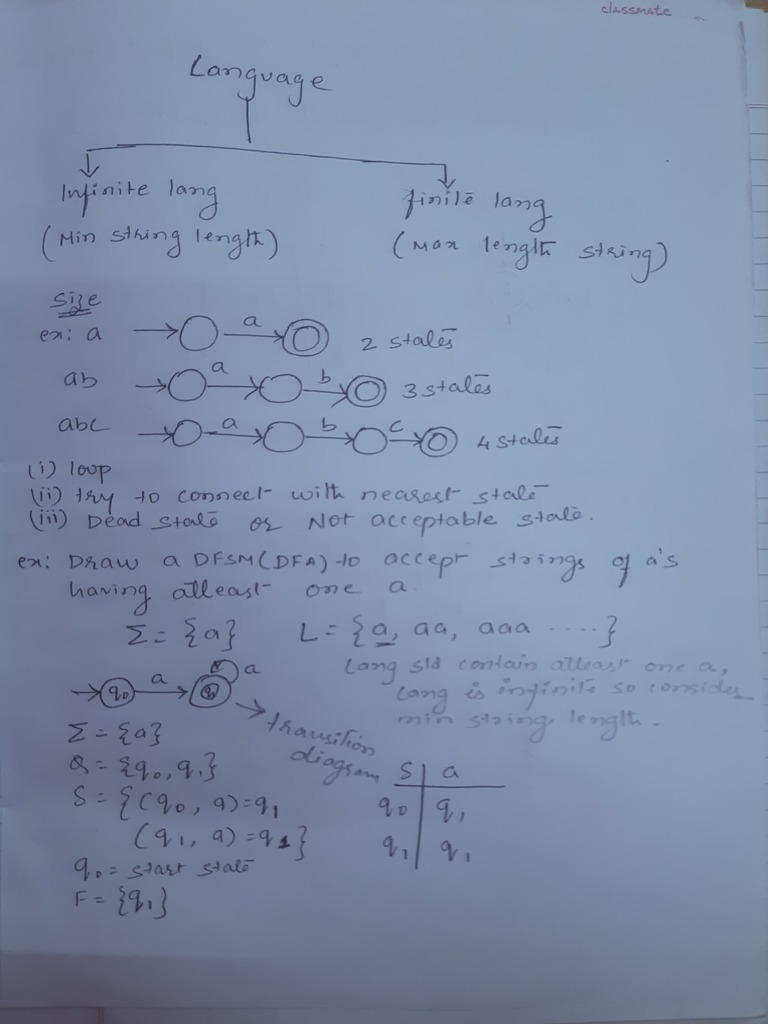 classmate
Language
Infinite lang
finite lang
(Min string length)
(Max length string)
Size
ex: a a 2 states
ab a b 3 states
abc a b c 4 states
(i) loop
(ii) try to connect with nearest state
(iii) Dead state or Not acceptable state.
ex: Draw a DFSM(DFA) to accept strings of a's
having atleast one a
Σ = {a} L = {a, aa, aaa .....}
Lang sld contain atleast one a,
lang is infinite so consider
min string length.
q0 a q1 a
transition
diagram
Σ = {a}
Q = {q0, q1}
S = {(q0, a) = q1
(q1, a) = q1}
q0 = start state
F = {q1}
S a
q0 q1
q1 q1